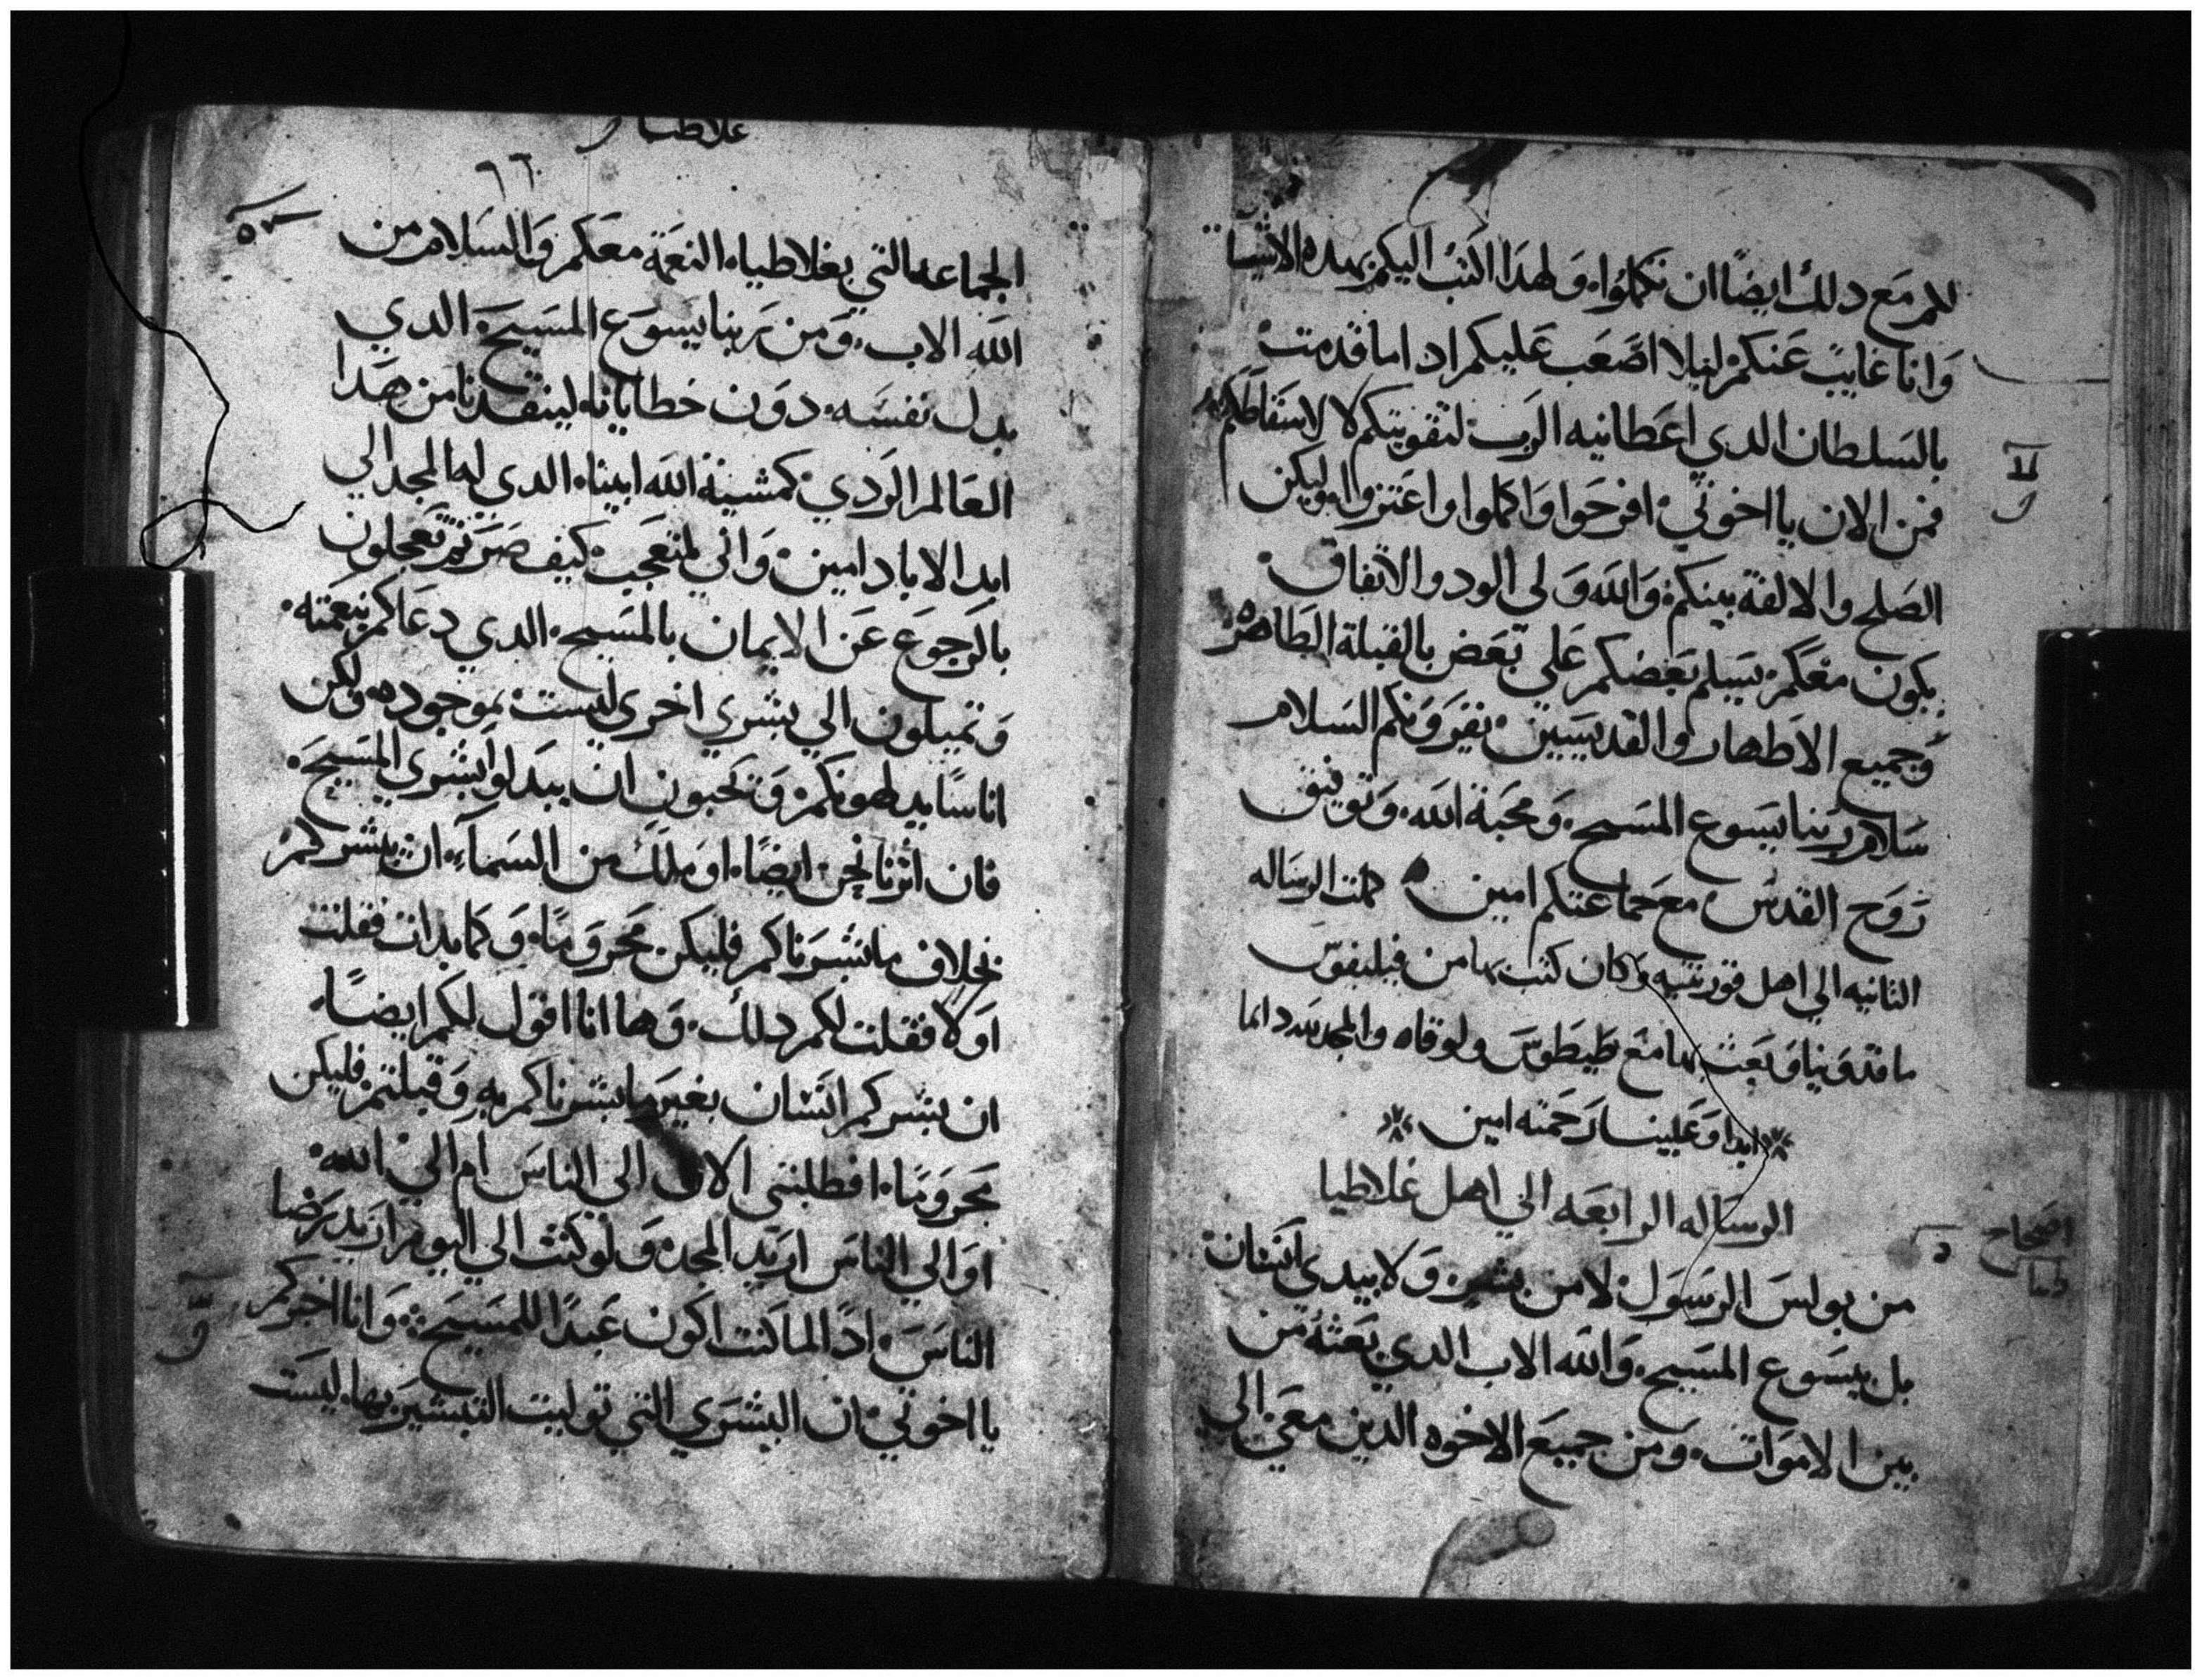 لكم مع دلك ايضًا ان تكملوا، ولهدا اكتب اليكم بهده الاشيا
وانا غايب عنكم ليلا اصعب عليكم ادا ما قدمت
بالسلطان الدي اعطانيه الرب لتقويتكم لا لاسقاطكم
فمن الان يا اخوتي افرحوا واكملوا واعتزوا وليكن
الصلح والالفة بينكم والله ولي الود والاتفاق
يكون معكم يسلم بعضكم علي بعض بالقبلة الطاهره
وجميع الاطهار والقديسين يقرونكم السلام
سلام ربنا يسوع المسيح، ومحبة الله، وتوفيق
روح القدس مع جماعتكم امين كملت الرساله
الثانيه الي اهل قورنتيه وكان كتب بها من فيليفوس
ماقدونيا وبعث بها مع طيطوس ولوقاه والمجد لله دايما
ابدا وعلينا رحمته امين
الرساله الرابعه الي اهل غلاطيا
اصحاح
من بولس الرسول لا من بشر ولا بيدي انسان
بل بيسوع المسيح، والله الاب الدي بعثه من
بين الاموات، ومن جميع الاخوه الدين معي الي
غلاطيا
٩٦
الجماعه التي بغلاطيا، النعمة معكم والسلام من
الله الاب، ومن ربنا يسوع المسيح الدي
بدل نفسه دون خطايانا، لينقدنا من هدا
العالم الردي كمشية الله ابينا، الدي له المجد الي
ابد الاباد امين واني لمتعجب كيف صرتم تعجلون
بالرجوع عن الايمان بالمسيح الدي دعاكم بنعمته
وتميلون الي بشري اخري ليست بموجوده ولكن
اناسًا يدلهونكم ويحبون ان يبدلوا بشري المسيح
فان اثرنا نحن ايضًا، او ملك من السماء ان يبشركم
بخلاف ما بشرناكم فليكن محرومًا، وكما بدات فقلت
اولا فقلت لكم دلك، وها انا اقول لكم ايضًا
ان بشركم انسان بغير ما بشرناكم به وقبلتم فليكن
محرومًا، افطلبتي الان الي الناس ام الي الله
او الي الناس اريد المجد، ولو كنت الي اليوم اريد رضا
الناس، ادًا لما كنت اكون عبدًا للمسيح وانا اخبركم
يا اخوتي ان البشري التي توليت التبشير بها، ليست